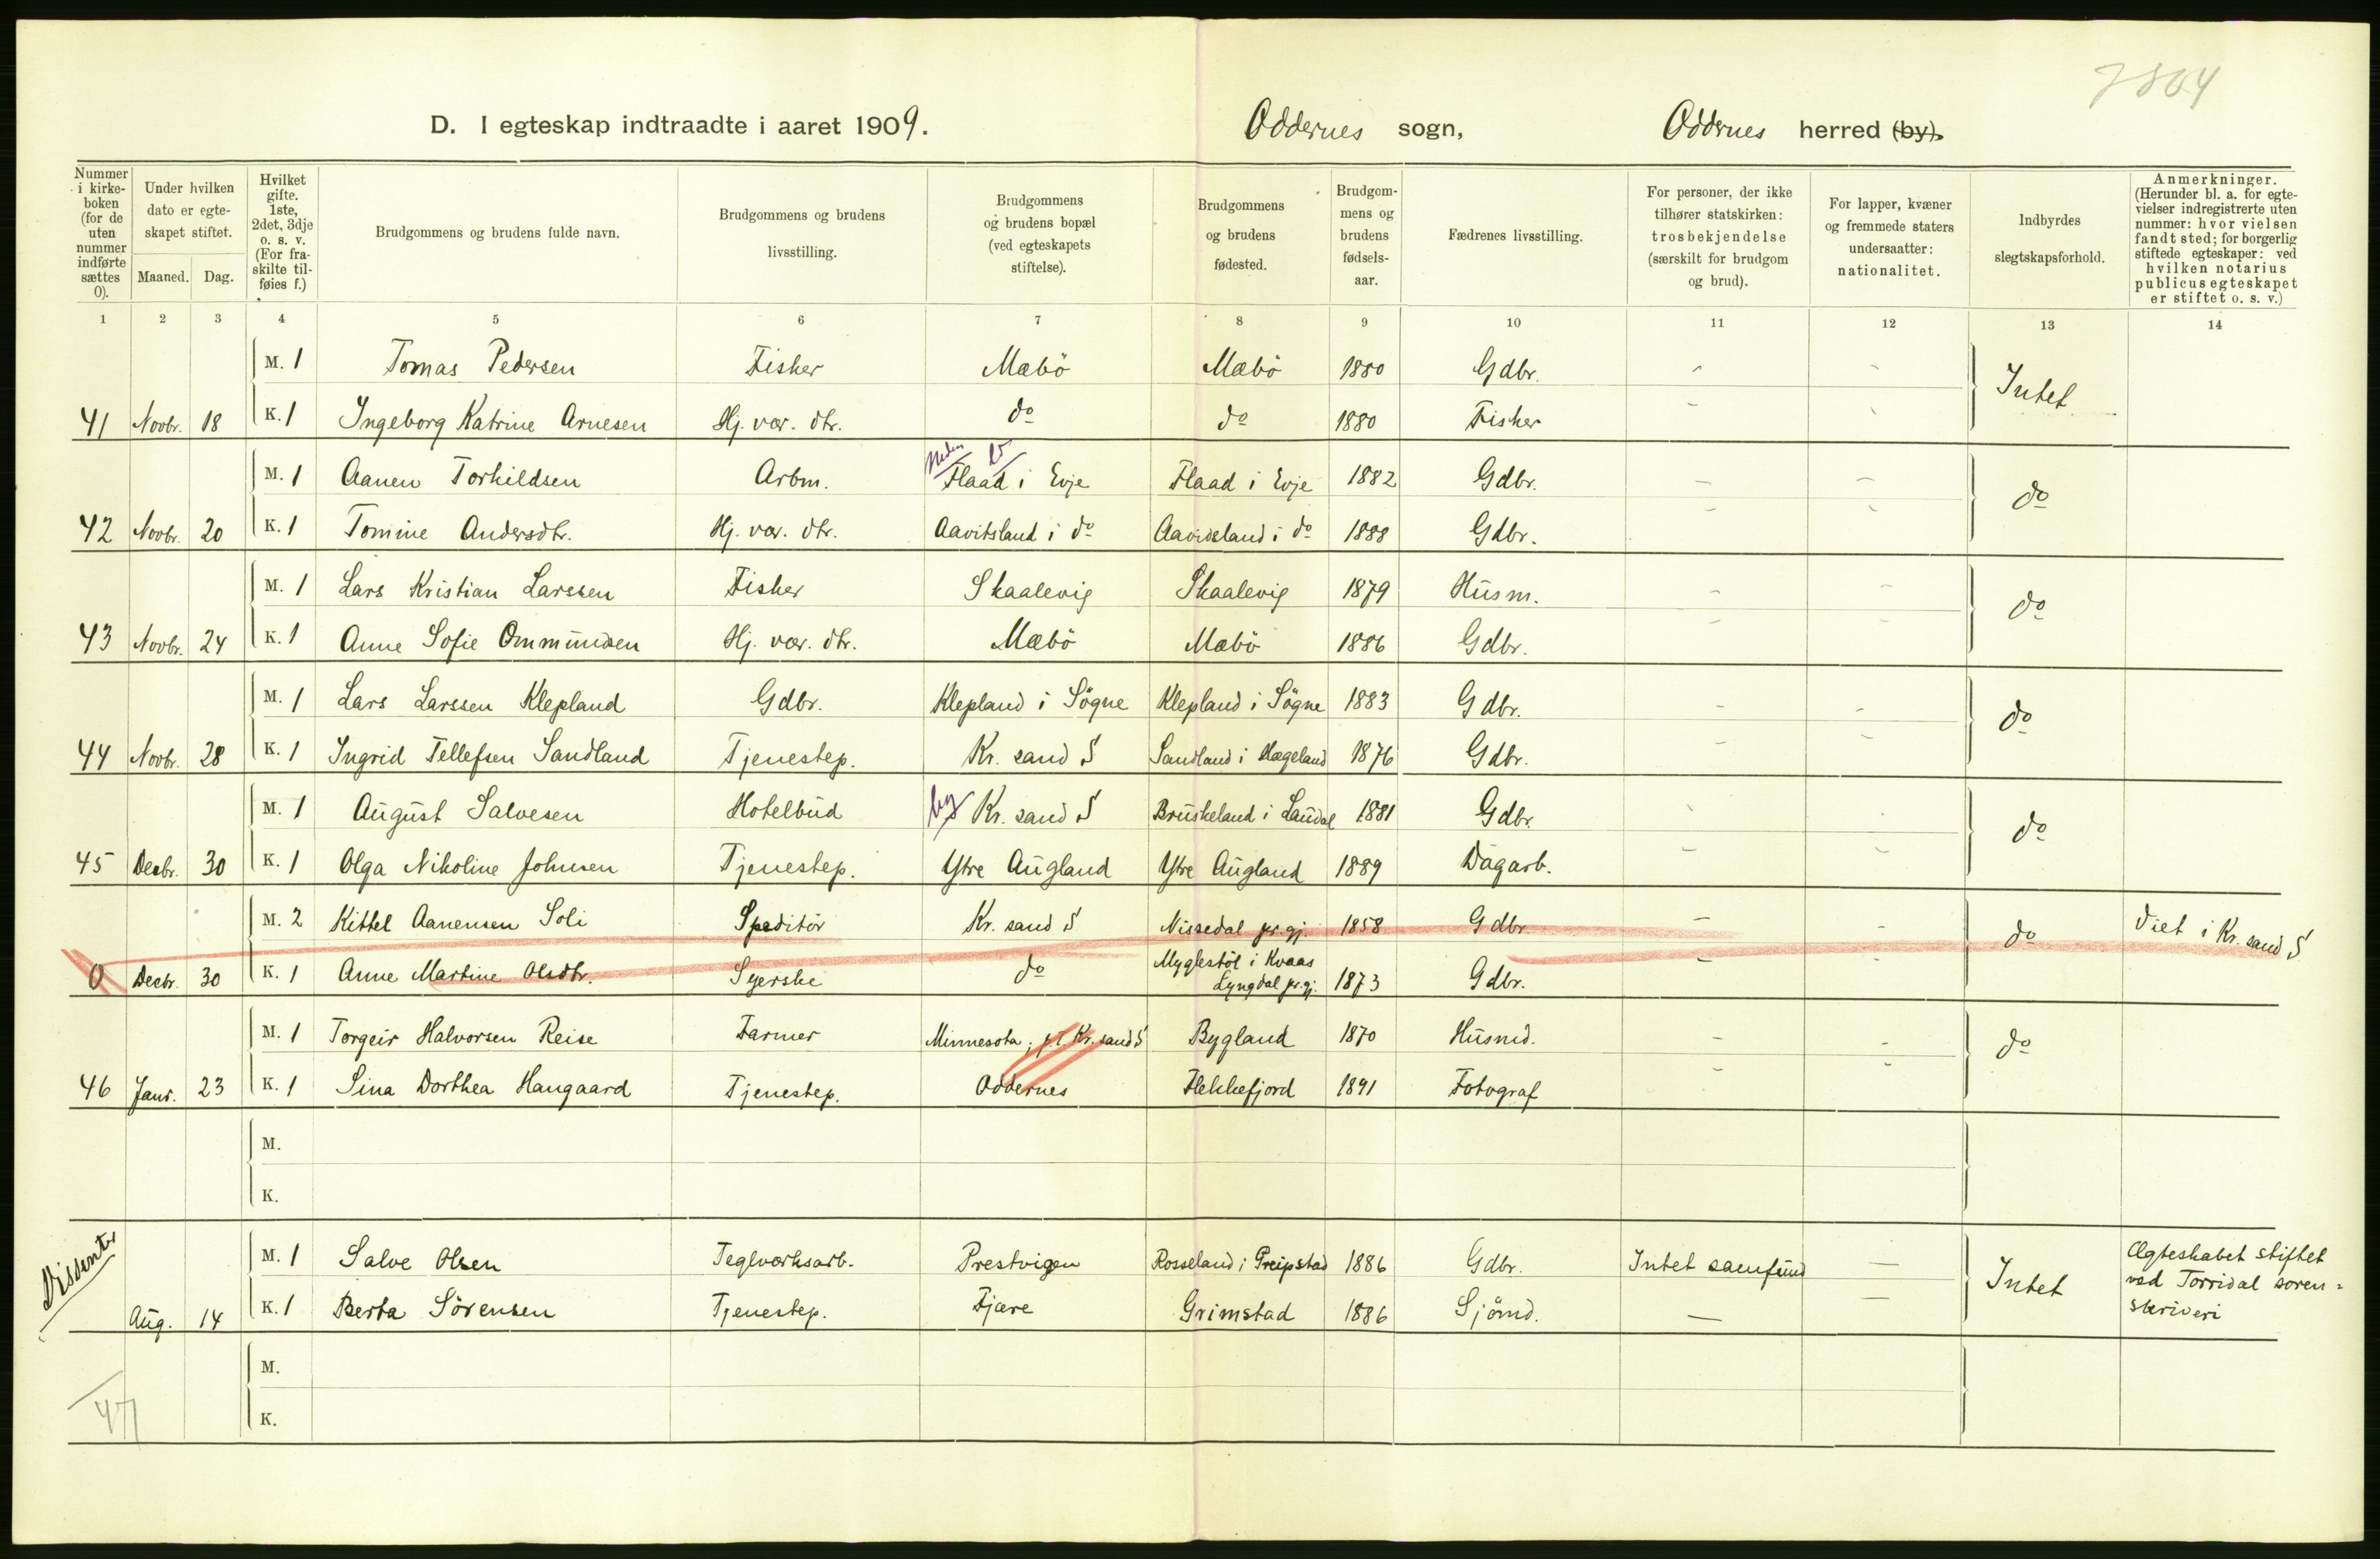 7804
D. I egteskap indtraadte i aaret 1909. Oddernes sogn, Oddernes herred (by).
Nummer i kirke-boken (for de uten nummer indførte sættes 0).
Under hvilken dato er egte-skapet stiftet.
Maaned. Dag.
Hvilket gifte. 1ste, 2det, 3dje o. s. v. (For fra-skilte til-føies f.)
Brudgommens og brudens fulde navn.
Brudgommens og brudens livsstilling.
Brudgommens og brudens bopæl (ved egteskapets stiftelse).
Brudgommens og brudens fødested.
Brudgom-mens og brudens fødsels-aar.
Fædrenes livsstilling.
For personer, der ikke tilhører statskirken: trosbekjendelse (særskilt for brudgom og brud).
For lapper, kvæner og fremmede staters undersaatter: nationalitet.
Indbyrdes slegtskapsforhold.
Anmerkninger. (Herunder bl. a. for egte-vielser indregistrerte uten nummer: hvor vielsen fandt sted; for borgerlig stiftede egteskaper: ved hvilken notarius publicus egteskapet er stiftet o. s. v.)
1 2 3 4 5 6 7 8 9 10 11 12 13 14
M. 1 Tomas Pedersen Fisker Mæbö Mæbö 1880 Gdbr. - - Intet
41 Novbr. 18 K. 1 Ingeborg Katrine Arnesen Hj. vær. dtr. do do 1880 Fisker - -
M. 1 Aanen Torkildsen Arbm. Flaad i Evje Flaad i Evje 1882 Gdbr. - - do
42 Novbr. 20 K. 1 Tomine Andersdtr. Hj. vær. dtr. Aavitsland i do Aavidsland i do 1888 Gdbr. - -
M. 1 Lars Kristian Larssen Fisker Skaalevig Skaalevig 1879 Husm. - - do
43 Novbr. 24 K. 1 Anne Sofie Ommundsen Hj. vær. dtr. Mæbö Mæbö 1886 Gdbr. - -
M. 1 Lars Larssen Klepland Gdbr. Klepland i Sögne Klepland i Sögne 1883 Gdbr. - - do
44 Novbr. 28 K. 1 Ingrid Tellefsen Sandland Tjenestep. Kr. sand S Sandland i Hægeland 1876 Gdbr. - -
M. 1 August Salvesen Hotelbud by Kr. sand S Brüskeland i Laudal 1881 Gdbr. - - do
45 Decbr. 30 K. 1 Olga Nikoline Johnsen Tjenestep. Ytre Augland Ytre Augland 1889 Dagarb. - -
M. 2 Kittel Aanensen Soli Speditör Kr. sand S Nissedal pr.gj. 1858 Gdbr. - - do Viet i Kr. sand S
0 Decbr. 30 K. 1 Anne Martine Olsdtr. Syerske do Myglestöl i Kvaas Lyngdal pr.gj. 1873 Gdbr. - -
M. 1 Torgeir Halvorsen Reise Farmer Minnesota; p.t. Kr. sand S Bygland 1870 Husmd. - - do
46 Janr. 23 K. 1 Sina Dorthea Haugaard Tjenestep. Oddernes Flekkefjord 1891 Fotograf - -
M.
K.
Dissenter
M. 1 Salve Olsen Teglværksarb. Prestvigen Rosseland i Greipstad 1886 Gdbr. Intet samfund — Intet Ægteskabet stiftet
ved Torridal soren=
skriveri
Aug. 14 K. 1 Berta Sörensen Tjenestep. Fjære Grimstad 1886 Sjömd. — —
M.
47
K.